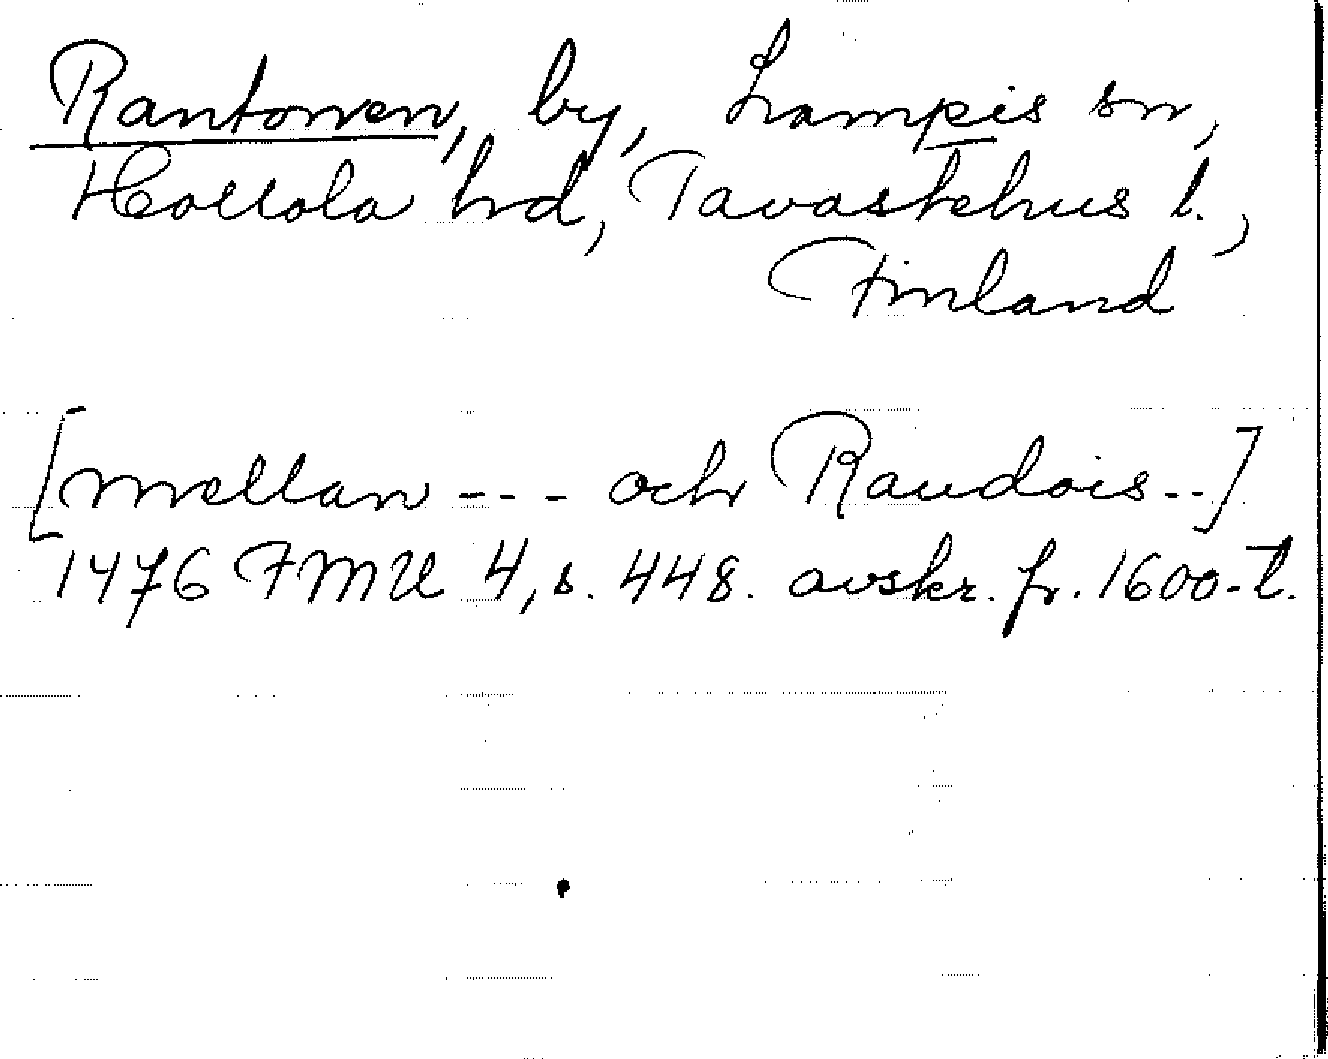 Rantomen, by, Lampis sn,
Hollola hd, Tavastehus l.,
Finland
[mellan --- och Raudois--]
1476 FMU 4, s. 448. avskr. fr. 1600-t.